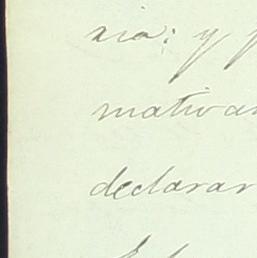 xia: y p
mativam
declarar